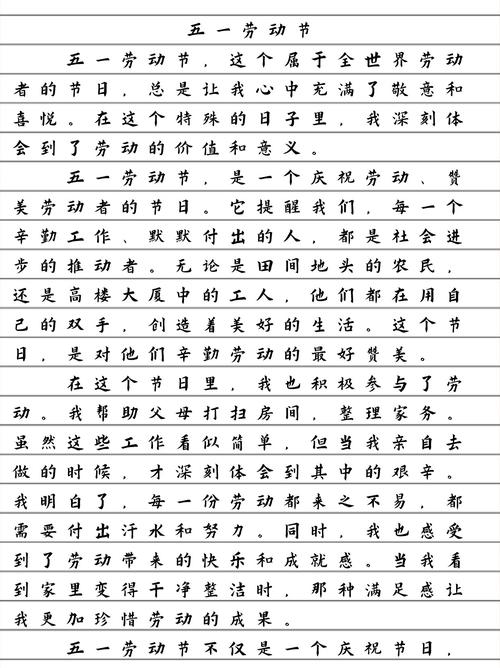 五一劳动节
五一劳动节，这个属于全世界劳动
者的节日，总是让我心中充满了敬意和
喜悦。在这个特殊的日子里，我深刻体
会到了劳动的价值和意义。
五一劳动节，是一个庆祝劳动、赞
美劳动者的节日。它提醒我们，每一个
辛勤工作、默默付出的人，都是社会进
步的推动者。无论是田间地头的农民，
还是高楼大厦中的工人，他们都在用自
己的双手，创造着美好的生活。这个节
日，是对他们辛勤劳动的最好赞美。
在这个节日里，我也积极参与了劳
动。我帮助父母打扫房间，整理家务。
虽然这些工作看似简单，但当我亲自去
做的时候，才深刻体会到其中的艰辛。
我明白了，每一份劳动都来之不易，都
需要付出汗水和努力。同时，我也感受
到了劳动带来的快乐和成就感。当我看
到家里变得干净整洁时，那种满足感让
我更加珍惜劳动的成果。
五一劳动节不仅是一个庆祝节日，